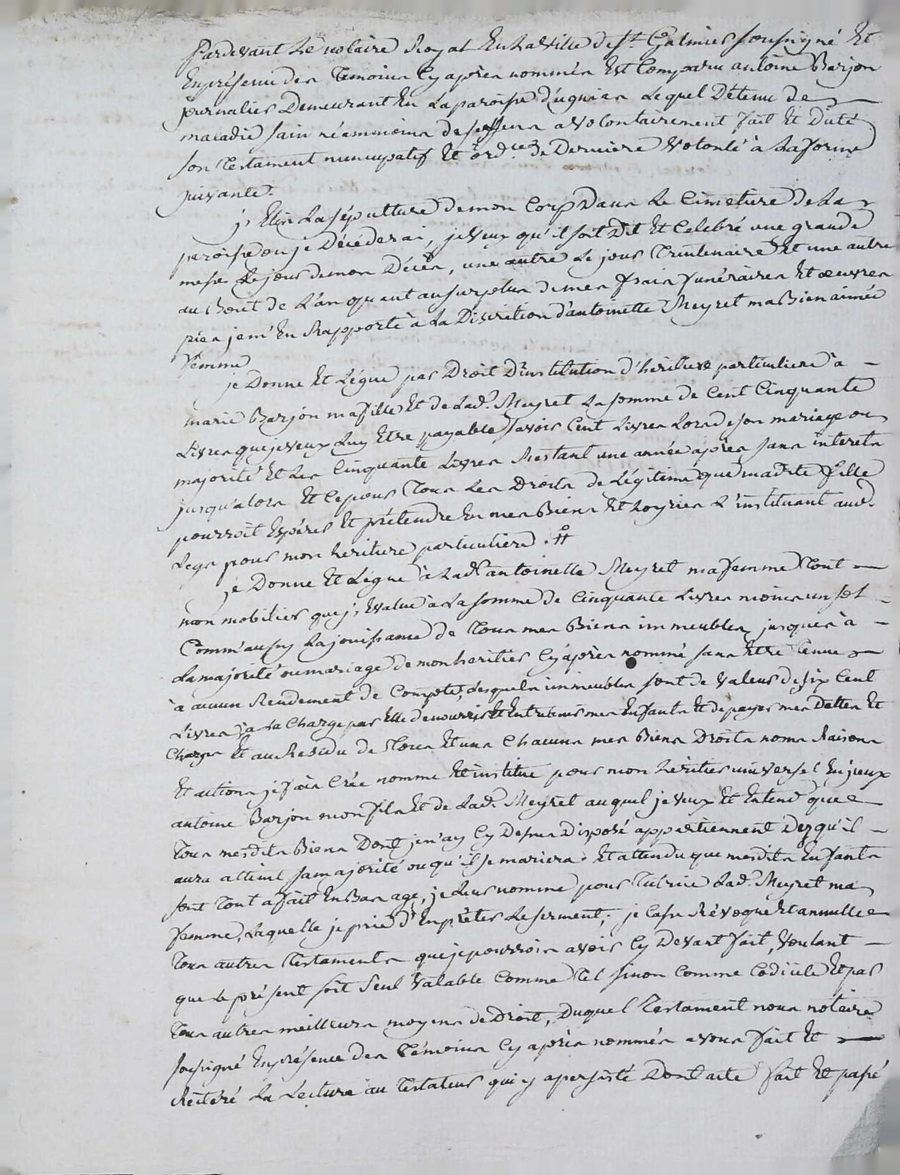 Pardevant Le notaire Royal En La Ville de St. Galmier soussigné Et
En présence des Temoins Cy après nommés Est Comparu antoine Barjon
journalier Demeurant En La paroisse d'aveizieu Lequel Détenu de
maladie sain néammoins de ses sens a volontairement fait Et dicté
son Testament nuncupatif Et ordce. de Derniere Volonté à La forme
suivante.
j'Elis La sépulture de mon Corp Dans Le Cimetiere de La
paroisse ou je Décéderai, je veux qu'il soit Dit Et Celebré une grande
messe Le jour de mon Décès, une autre Le jour Trentenaire Et une autre
au Bout de L'an quant au surplus de mes frais funéraires Et oeuvres
pies je m'En Rapporte à La Discrétion d'antoinette Meyret ma Bien aimée
femme
je Donne Et Légue par Droit D'institution d'héritiere particuliere à
marie Barjon ma fille Et de Lad. Meyret La somme de Cent Cinquante
Livres que je veux Luy Etre payable savoir Cent Livres Lors de son mariage ou
majorité Et Les Cinquante Livres Restant une année après sans interets
jusqu'alors Et Ce pour Tous Les Droits de Légitime que madite fille
pourroit Espérer Et prétendre En mes Biens Et hoyrie L'instituant aud.
Legs pour mon heritiere particuliere.
je Donne Et Légue à Lad. antoinette Meyret ma femme Tout
mon mobilier que j'Evalue à La somme de Cinquante Livres moins un sol
Comm'aussy La jouissance de Tous mes Biens immeubles jusques à
La majorité ou mariage de mon heritier Cy après nommé sans Etre Tenue
à aucun Rendement de Compte, desquels immeubles sont de Valeur de six Cent
Livres à La Charge par Elle de nourrir Et Entretenir mes Enfants Et de payer mes Dettes Et
Charges Et au Residu de Tous Et uns Chacuns mes Biens Droits noms Raisons
Et actions je fais Crée nomme Et institue pour mon héritier universel
antoine Barjon mon fils Et de Lad. Meyret auquel je veux Et Entend que
Tous mesdits Biens Dont je n'ay Cy Dessus Disposé appartiennent Dez qu'il
aura atteint sa majorité ou qu'il se mariera. Et attendu que mesdits Enfants
sont Tout à fait En Bas age, je Leur nomme pour Tutrice Lad. Meyret ma
femme, Laquelle je prie d'En prêter Le serment. je Casse Révoque Et annulle
Tous autres Testaments que je pourrois avoir Cy Devant fait, Voulant
que Le présent soit seul Valable Comme Tel sinon Comme Codicile Et par
Tous autres meilleurs moyens de Droit, Duquel Testament nous notaire
soussigné En présence des Témoins Cy après nommés avons fait Et
Réitéré La Lecture au Testateur qui y a persisté Dont acte fait Et passé